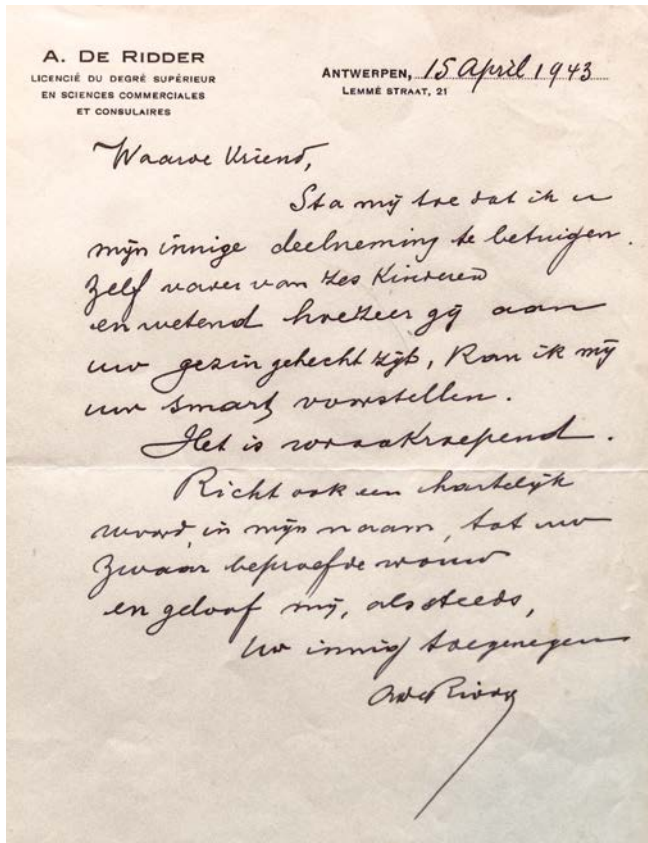 A. DE RIDDER
LICENCIÉ DU DEGRÉ SUPÉRIEUR
EN SCIENCES COMMERCIALES
ET CONSULAIRES
ANTWERPEN, 15 April 1943
LEMMÉ STRAAT, 21
Waarde Vriend,
Sta mij toe dat ik u
mijn innige deelneming te betuigen.
Zelf vader van zes kinderen
en wetend hoezeer gij aan
uw gezin gehecht zijt, kan ik mij
uw smart voorstellen.
Het is wraakroepend.
Richt ook een hartelijk
woord, in mijn naam, tot uw
zwaar beproefde vrouw
en geloof mij, als steeds,
Uw innig toegenegen
A de Ridder